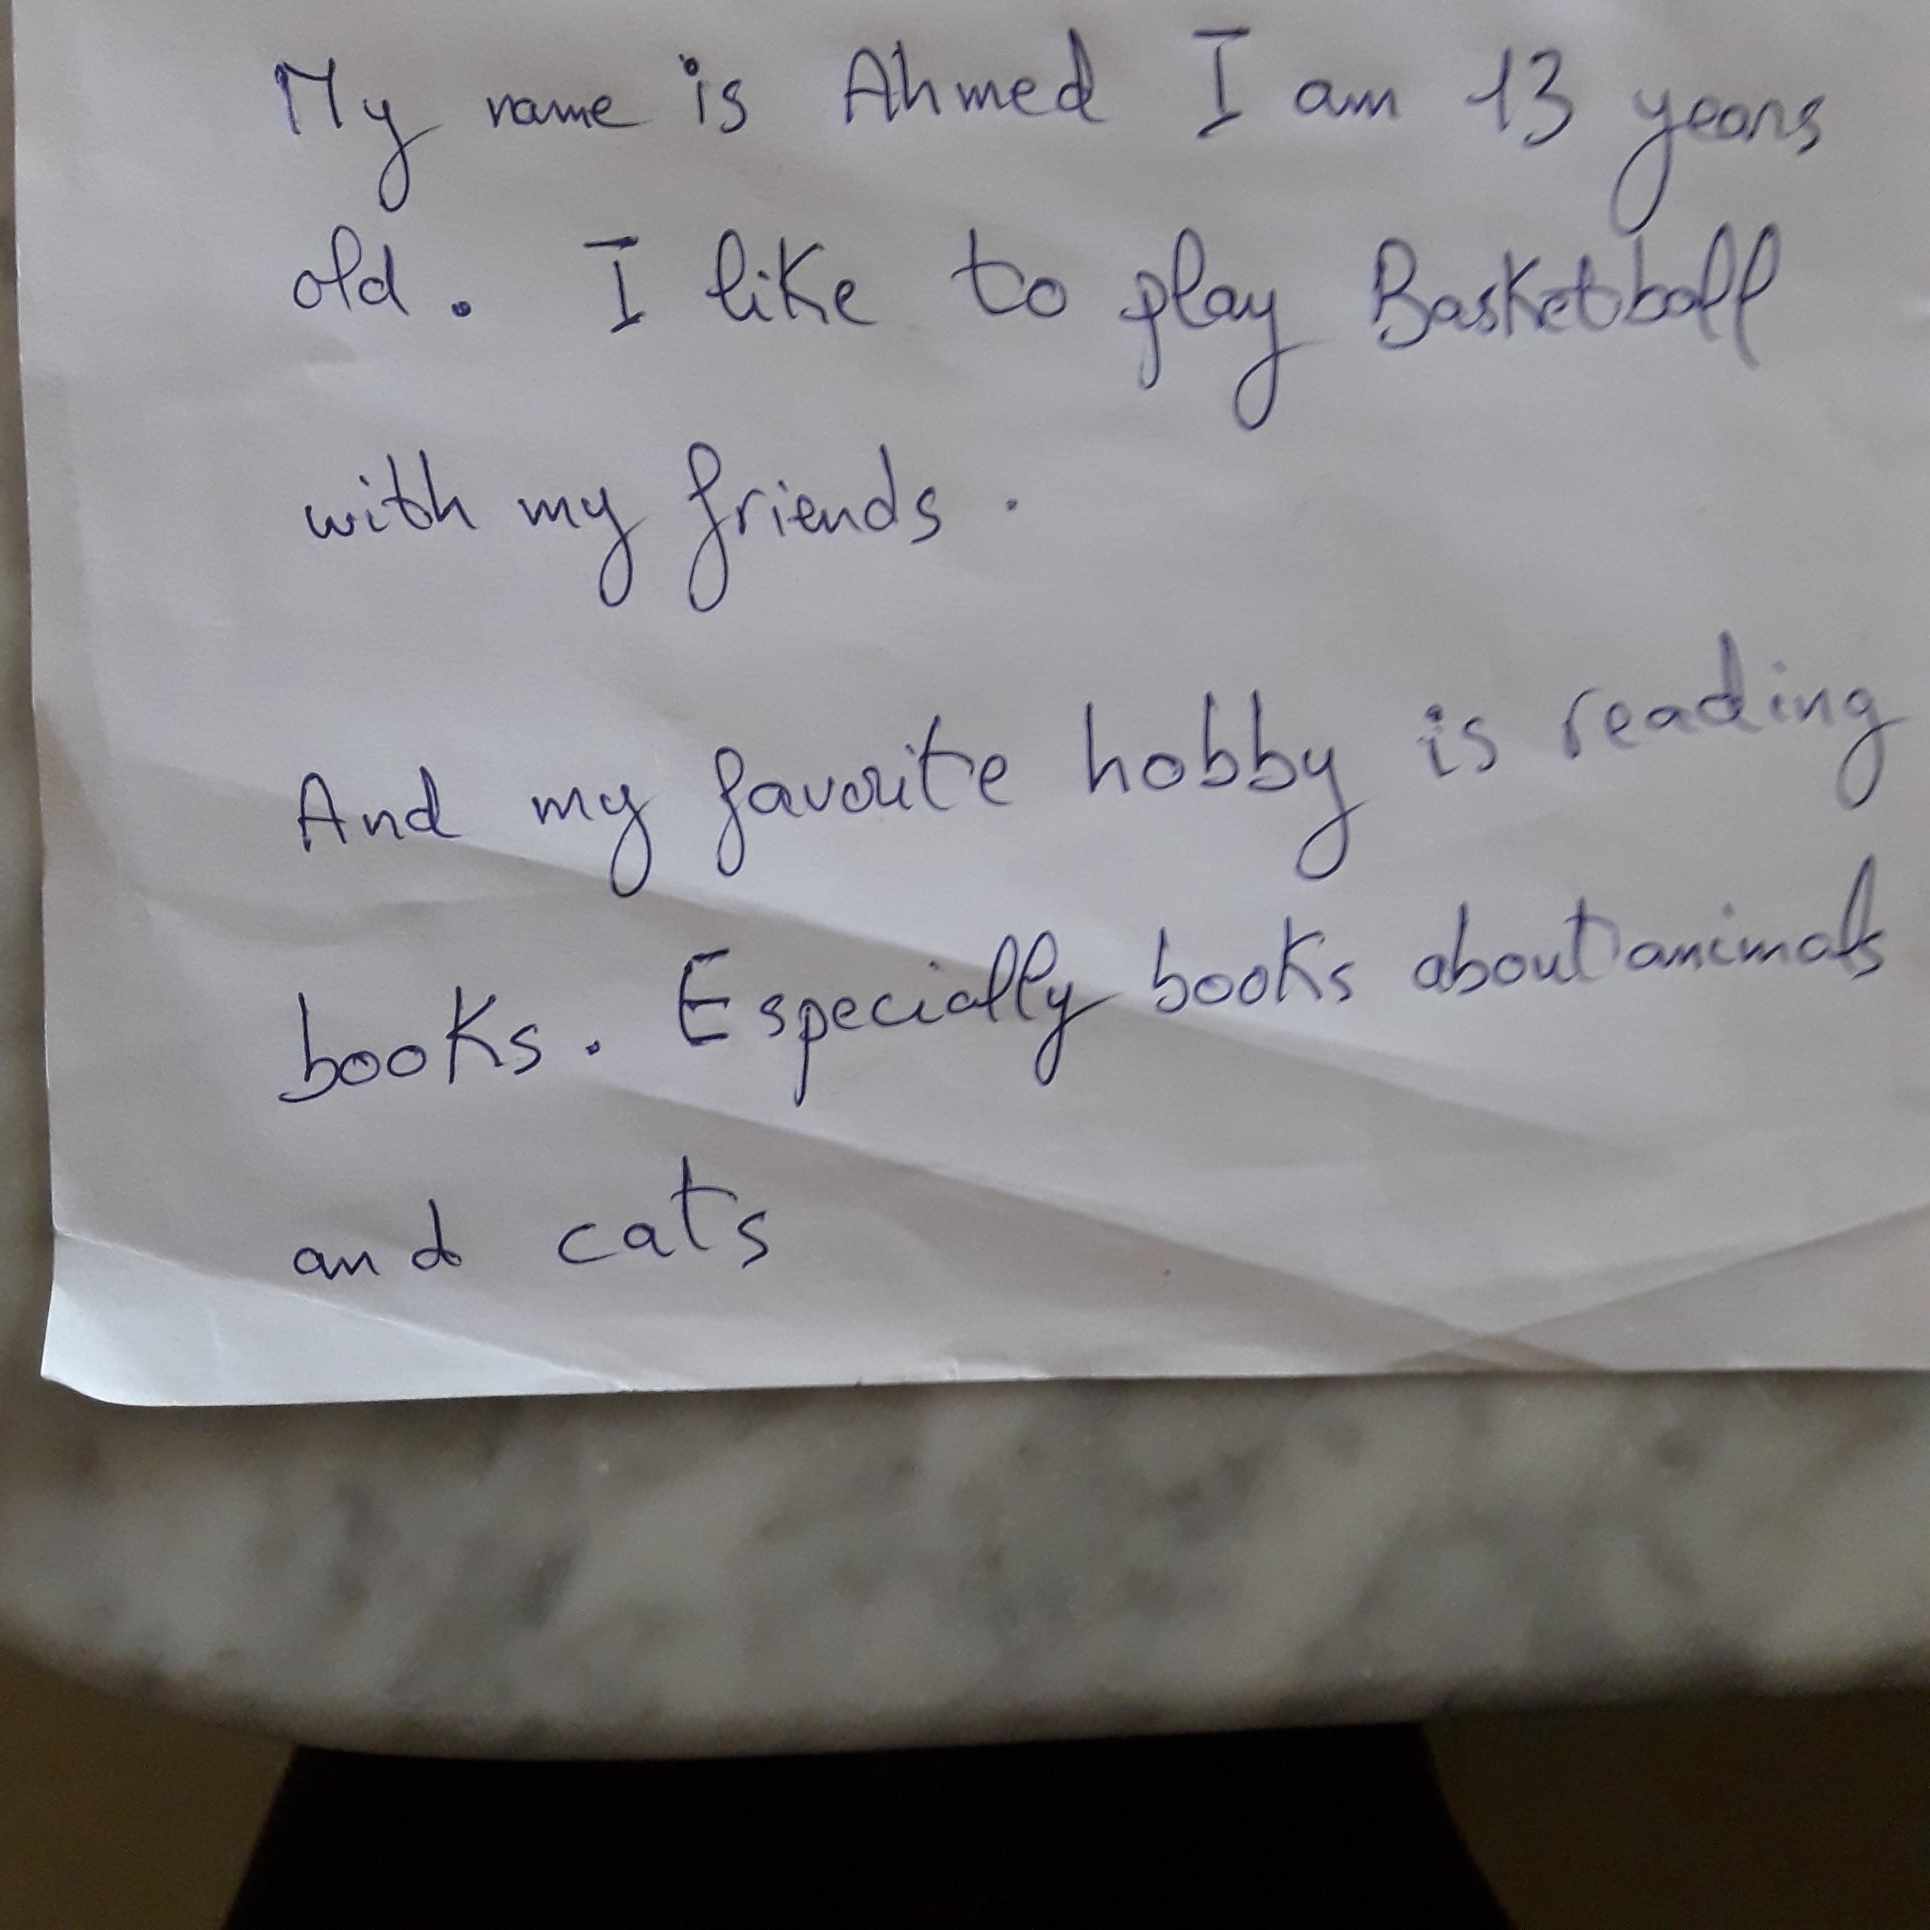 My name is Ahmed I am 13 years
old. I like to play Basketball
with my friends.
And my favorite hobby is reading
books. Especially books about animals
and cats